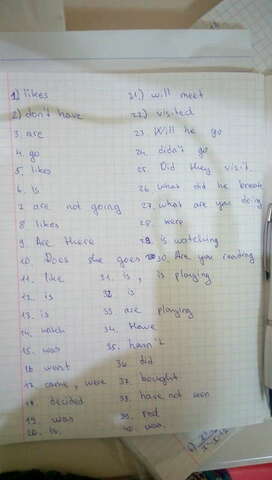 1) likes
2) don't have
3. are
4. go
5. likes
6. is
7. are not going
8. likes
9. Are there
10. Does she goes
11. like
12. is
13. is
14. watch
15. was
16. went
17. came, were
18. decided
19. was
20. is
21.) will meet
22.) visited
23. Will he go
24. didn't go
25. Did they visit
26. what did he break
27. what are you doing
28. were
29. is watching
30. Are you reading
31. is, is playing
32. is
33. are playing
34. Have
35. hasn't
36. did
37. bought
38. have not seen
39.
40. was